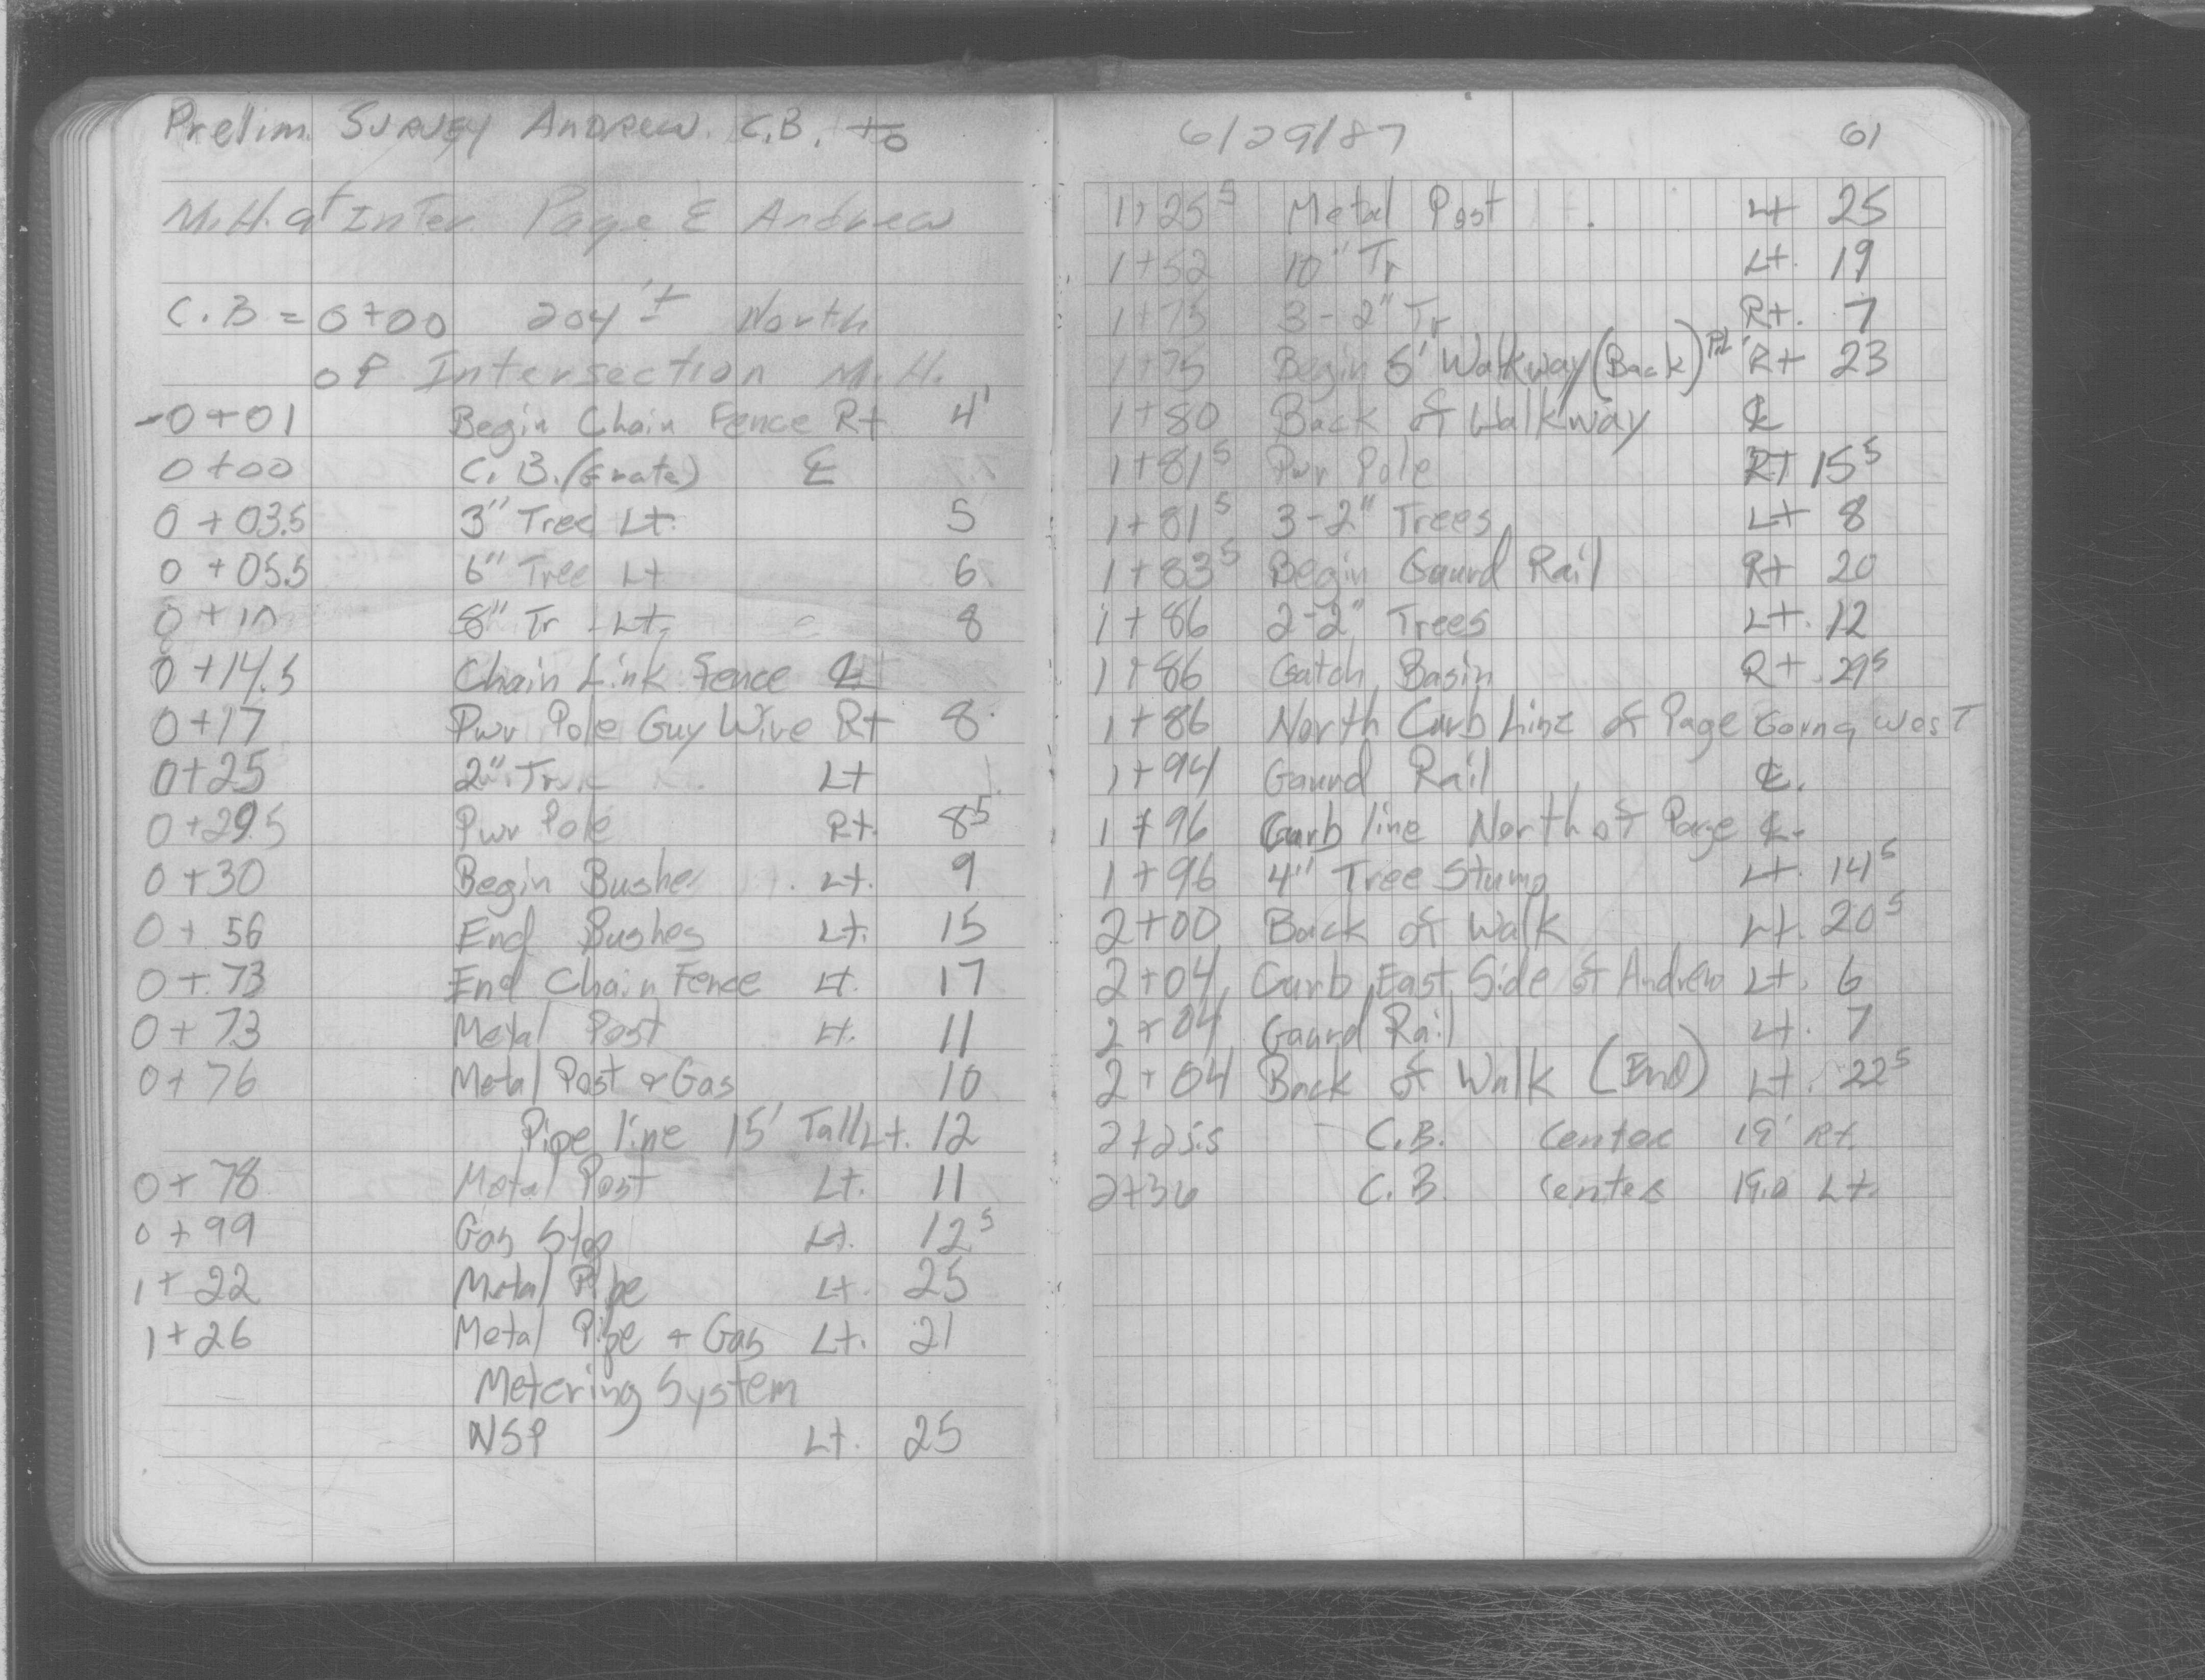 Prelim. Survey Andrew. C.B. to
M.H. at Inter. Page & Andrew
C.B = 0+00 204'± North
of Intersection M.H.
-0+01 Begin Chain Fence Rt 4'
0+00 C.B. (Grate) ℄
0+03.5 3" Tree Lt. 5
0+05.5 6" Tree Lt 6
0+10 8" Tr Lt. 8
0+14.5 Chain Link Fence ℄
0+17 Pwr Pole Guy Wire Rt 8
0+25 2" Tree Lt
0+29.5 Pwr Pole Rt. 8⁵
0+30 Begin Bushes Lt. 9
0+56 End Bushes Lt. 15
0+73 End Chain Fence Lt. 17
0+73 Metal Post Lt. 11
0+76 Metal Post & Gas 10
Pipe line 15' Tall Lt. 12
0+78 Metal Post Lt. 11
0+99 Gas Stop Lt. 12⁵
1+22 Metal Pipe Lt. 25
1+26 Metal Pipe + Gas Lt. 21
Metering System
NSP Lt. 25
6/29/87 61
1+25⁵ Metal Post Lt 25
1+52 10" Tr Lt. 19
1+75 3-2" Tr Rt. 7
1+75 Begin 5' Walkway (Back) Rt 23
1+80 Back of Walkway ℄
1+81⁵ Pwr Pole Rt 15⁵
1+81⁵ 3-2" Trees Lt 8
1+83⁵ Begin Gaurd Rail Rt 20
1+86 2-2" Trees Lt. 12
1+86 Catch Basin Rt. 29⁵
1+86 North Curb Line of Page Going West
1+94 Gaurd Rail ℄.
1+96 Curb line North of Page ℄.
1+96 4" Tree Stump Lt. 14⁵
2+00 Back of Walk Lt. 20⁵
2+04 Curb East Side of Andrew Lt. 6
2+04 Gaurd Rail Lt. 7
2+04 Back of Walk (End) Lt. 22⁵
2+25.5 C.B. Center 19' Rt.
2+36 C.B. Center 19.0 Lt.